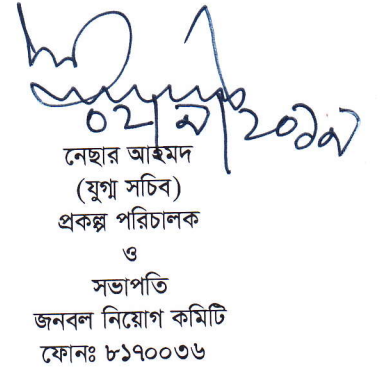 নেছার আহমদ
(যুগ্ম সচিব)
প্রকল্প পরিচালক
ও
সভাপতি
জনবল নিয়োগ কমিটি
ফোনঃ ৮১৭০০৩৬